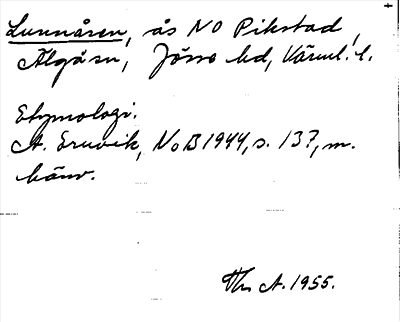 Lunnåsen, ås NO Pikstad,
Älgå sn, Jösse hd, Värml. l.
Etymologi.
A. Ernvik, NoB 1944, s. 137, m.
hänv.
A. 1955.